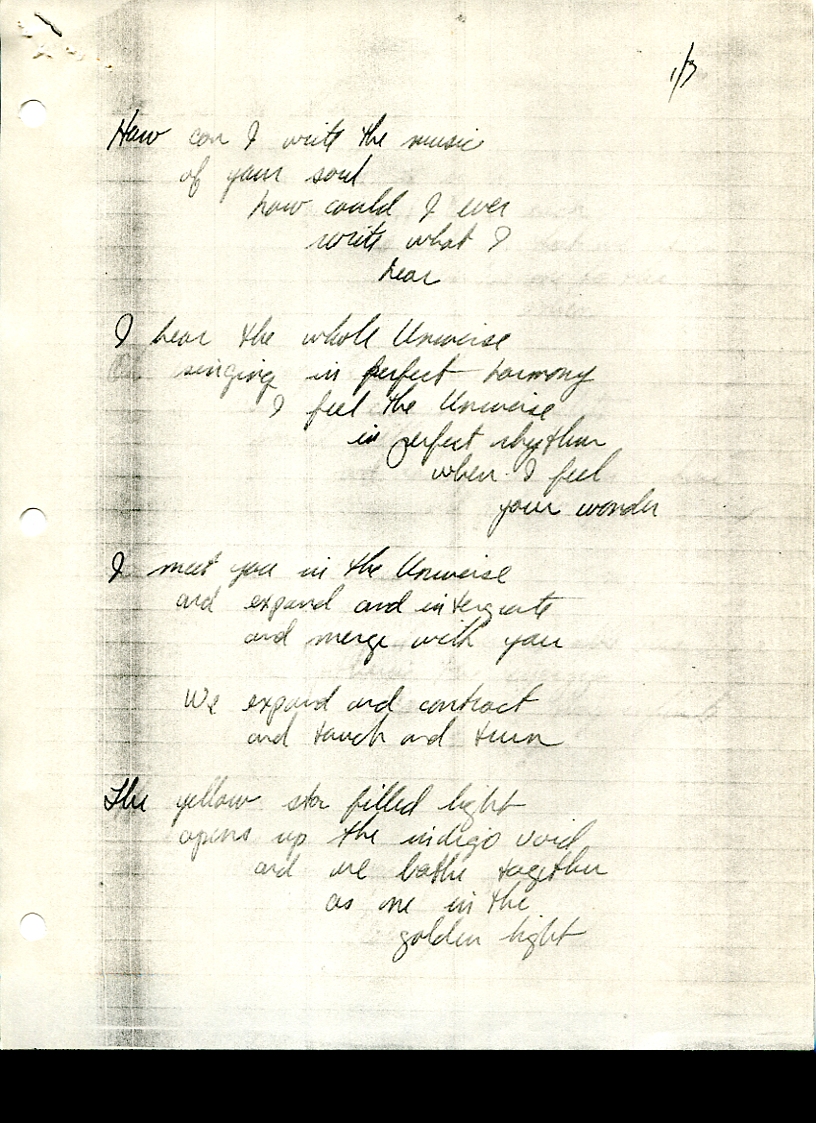 1/3
How can I write the music
of your soul
how could I ever
write what I
hear
I hear the whole Universe
singing in perfect harmony
I feel the Universe
in perfect rhythm
when I feel
your wonder
I meet you in the Universe
and expand and intergrate
and merge with you
We expand and contract
and touch and turn
The yellow star filled light
opens up the indigo void
and we bathe together
as one in the
golden light